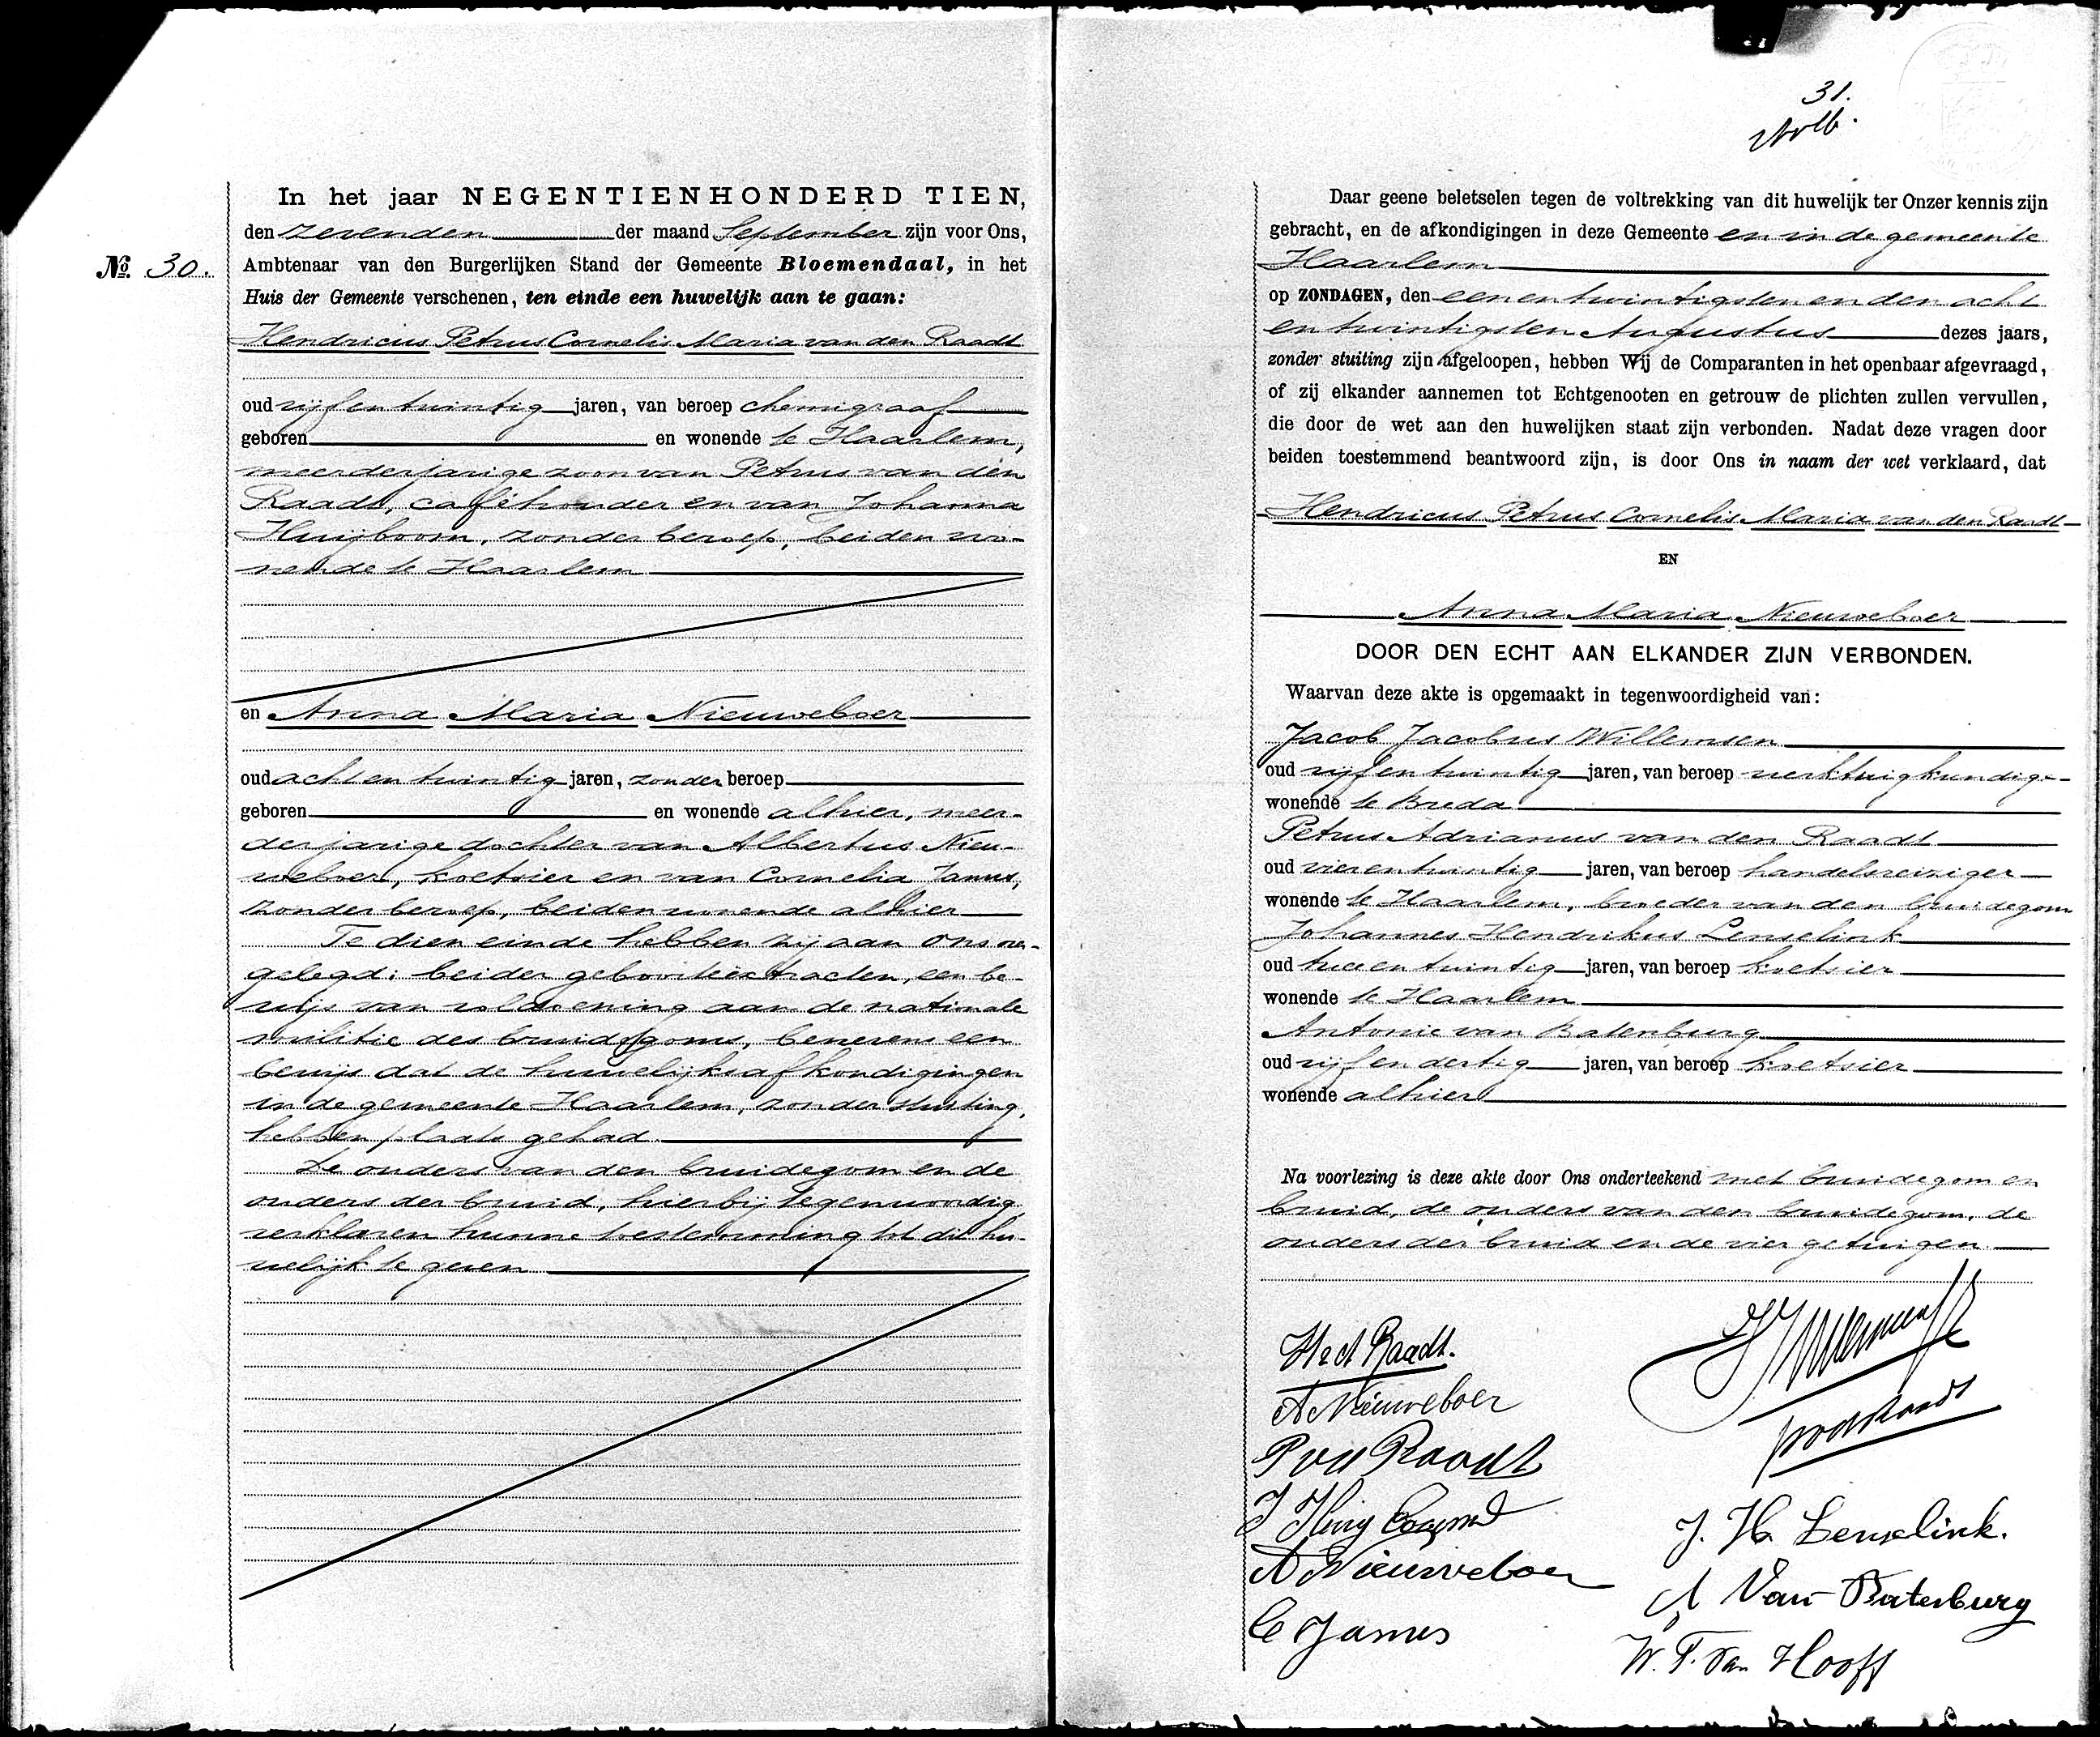 In het jaar NEGENTIENHONDERD TIEN,
den zevenden der maand September zijn voor Ons,
№ 30. Ambtenaar van den Burgerlijken Stand der Gemeente Bloemendaal, in het
Huis der Gemeente verschenen, ten einde een huwelijk aan te gaan:
Hendricus Petrus Cornelis Maria van den Raadt
oud vijf en twintig jaren, van beroep chemigraaf
geboren en wonende te Haarlem,
meerderjarige zoon van Petrus van den
Raadt, caféhouder en van Johanna
Huijboom, zonder beroep, beiden wo-
nende te Haarlem
en Anna Maria Nieuweboer
oud acht en twintig jaren, zonder beroep
geboren en wonende alhier, meer-
derjarige dochter van Albertus Nieu-
weboer, koetsier en van Cornelia James,
zonder beroep, beiden wonende alhier
Te dien einde hebben zij aan ons over-
gelegd: beider geboorteextracten, een be-
wijs van voldoening aan de nationale
militie des bruidegoms, benevens een
bewijs dat de huwelijksafkondigingen
in de gemeente Haarlem, zonder stuiting,
hebben plaats gehad.
De ouders van den bruidegom en de
ouders der bruid, hierbij tegenwoordig
verklaren hunne toestemming tot dit hu-
welijk te geven
31.
Daar geene beletselen tegen de voltrekking van dit huwelijk ter Onzer kennis zijn
gebracht, en de afkondigingen in deze Gemeente en in de gemeente
Haarlem
op ZONDAGEN, den een en twintigsten en den acht
en twintigsten Augustus dezes jaars,
zonder stuiting zijn afgeloopen, hebben Wij de Comparanten in het openbaar afgevraagd,
of zij elkander aannemen tot Echtgenooten en getrouw de plichten zullen vervullen,
die door de wet aan den huwelijken staat zijn verbonden. Nadat deze vragen door
beiden toestemmend beantwoord zijn, is door Ons in naam der wet verklaard, dat
Hendricus Petrus Cornelis Maria van den Raadt
EN
Anna Maria Nieuweboer
DOOR DEN ECHT AAN ELKANDER ZIJN VERBONDEN.
Waarvan deze akte is opgemaakt in tegenwoordigheid van:
Jacob Jacobus Willemsen
oud vijf en twintig jaren, van beroep werktuigkundige
wonende te Breda
Petrus Adrianus van den Raadt
oud vier en twintig jaren, van beroep handelsreiziger
wonende te Haarlem, broeder van den bruidegom
Johannes Hendrikus Lenselink
oud twee en twintig jaren, van beroep koetsier
wonende te Haarlem
Antonie van Batenburg
oud vijf en dertig jaren, van beroep koetsier
wonende alhier
Na voorlezing is deze akte door Ons onderteekend met bruidegom en
bruid, de ouders van den bruidegom, de
ouders der bruid en de vier getuigen.
HvdRaadt.
A Nieuweboer
P vd Raadt
J Huijboom
A Nieuweboer
C James
JJWillemsen
pvdRaadt
J. H. Lenselink.
A Van Batenburg
W. P. van Hooff